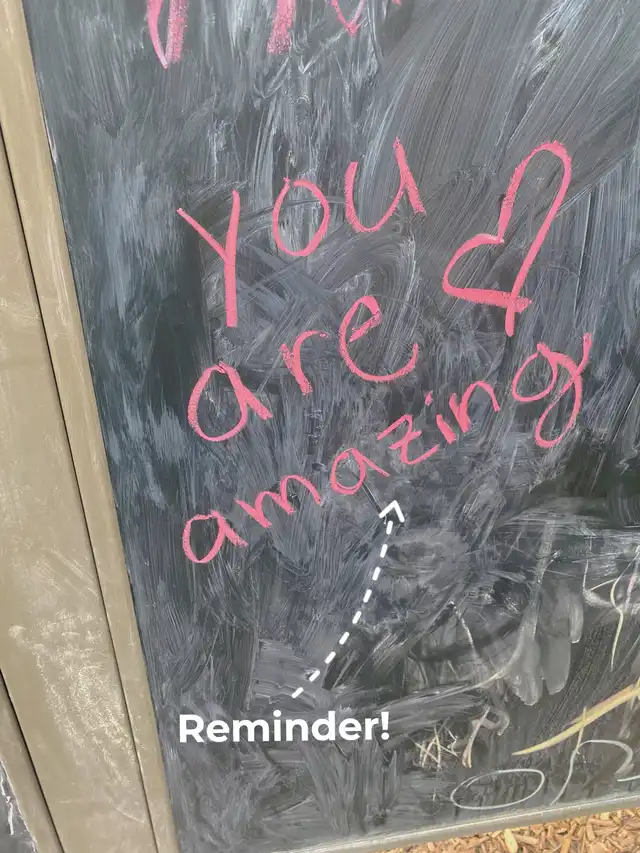 You
are
amazing
Reminder!